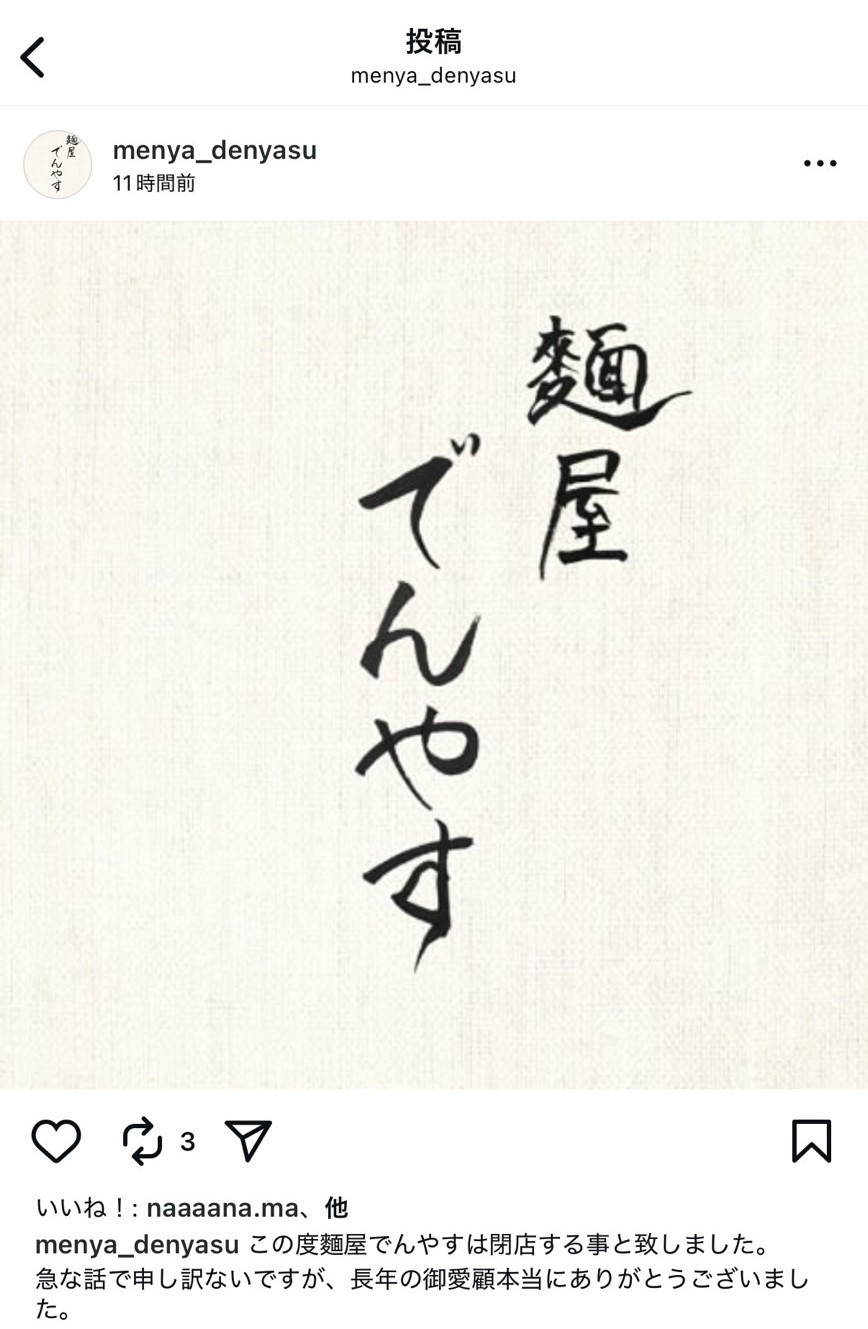 投稿
menya_denyasu
麺屋
でんやす
menya_denyasu
11時間前
麺屋
でんやす
3
いいね！: naaaana.ma、他
menya_denyasu この度麺屋でんやすは閉店する事と致しました。
急な話で申し訳ないですが、長年の御愛顧本当にありがとうございまし
た。